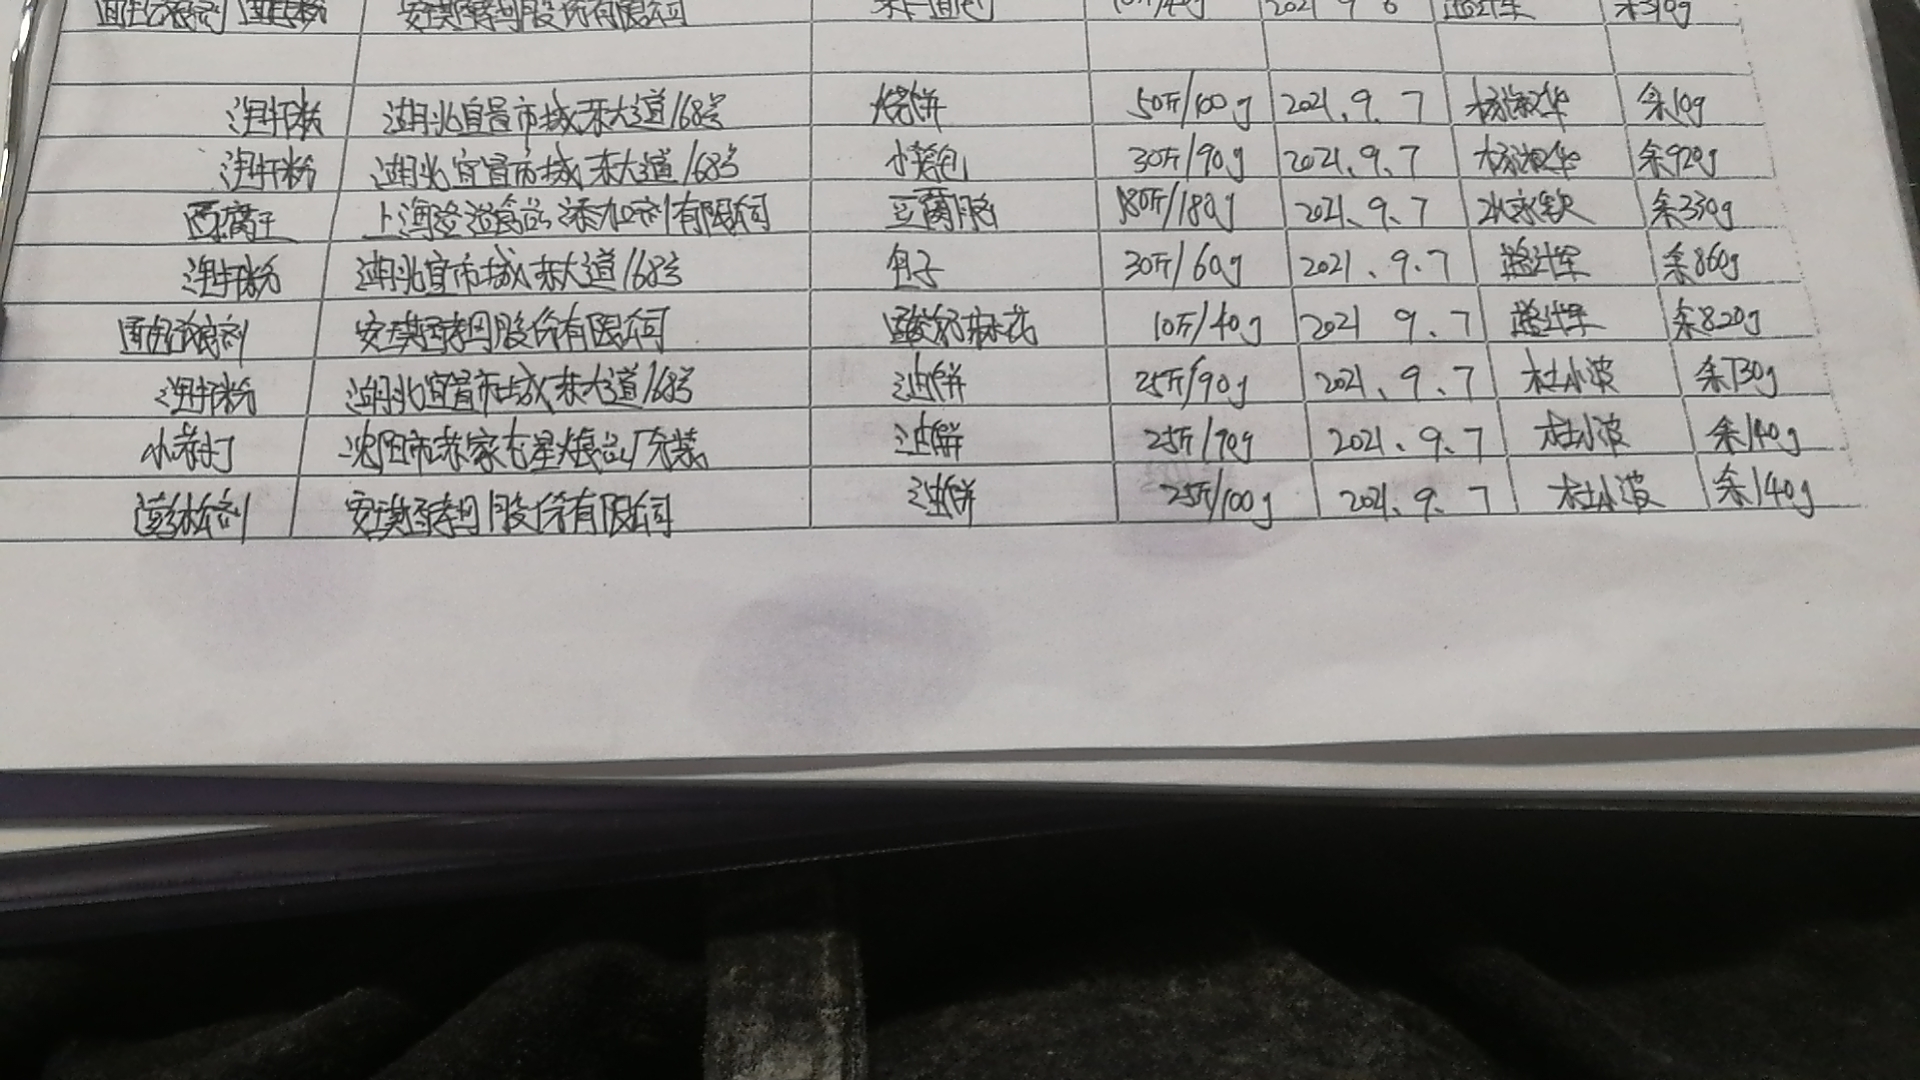 面包改良剂 安琪酵母股份有限公司 2021 9 6
泡打粉 湖北宜昌市城东大道168号 烧饼 50斤/100g 2021.9.7 杨淑华 余10g
泡打粉 湖北宜昌市城东大道168号 小笼包 30斤/90g 2021.9.7 杨淑华 余920g
豆腐王 上海澄溢食品添加剂有限公司 豆腐脑 180斤/180g 2021.9.7 余330g
泡打粉 湖北宜市城东大道168号 包子 30斤/60g 2021.9.7 余860g
面包改良剂 安琪酵母股份有限公司 酸奶麻花 10斤/40g 2021 9.7 余820g
泡打粉 湖北宜昌市城东大道168号 油饼 25斤/90g 2021.9.7 杜小波 余730g
小苏打 沈阳市苏家屯星火食品厂分装 油饼 25斤/90g 2021.9.7 杜小波 余140g
蓬松剂 安琪酵母股份有限公司 油饼 25斤/100g 2021.9.7 杜小波 余140g